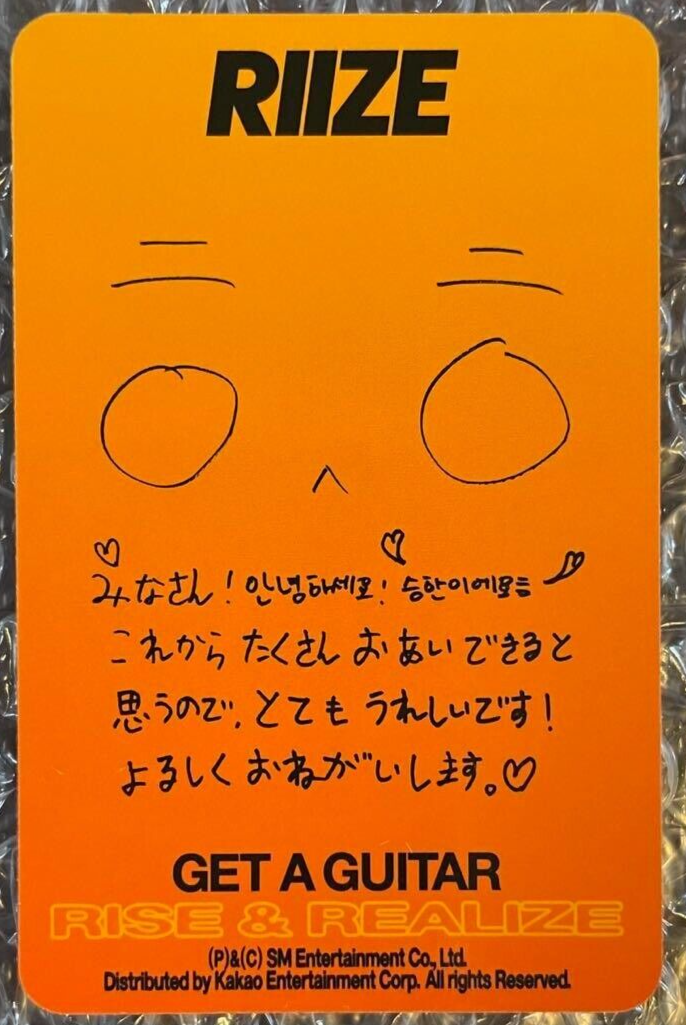 RIIZE
みなさん！안녕하세요! 승한이에요
これから たくさん おあいできると
思うので、とても うれしいです！
よるしく おねがいします。♡
GET A GUITAR
RISE & REALIZE
(P)&(C) SM Entertainment Co., Ltd.
Distributed by Kakao Entertainment Corp. All rights Reserved.